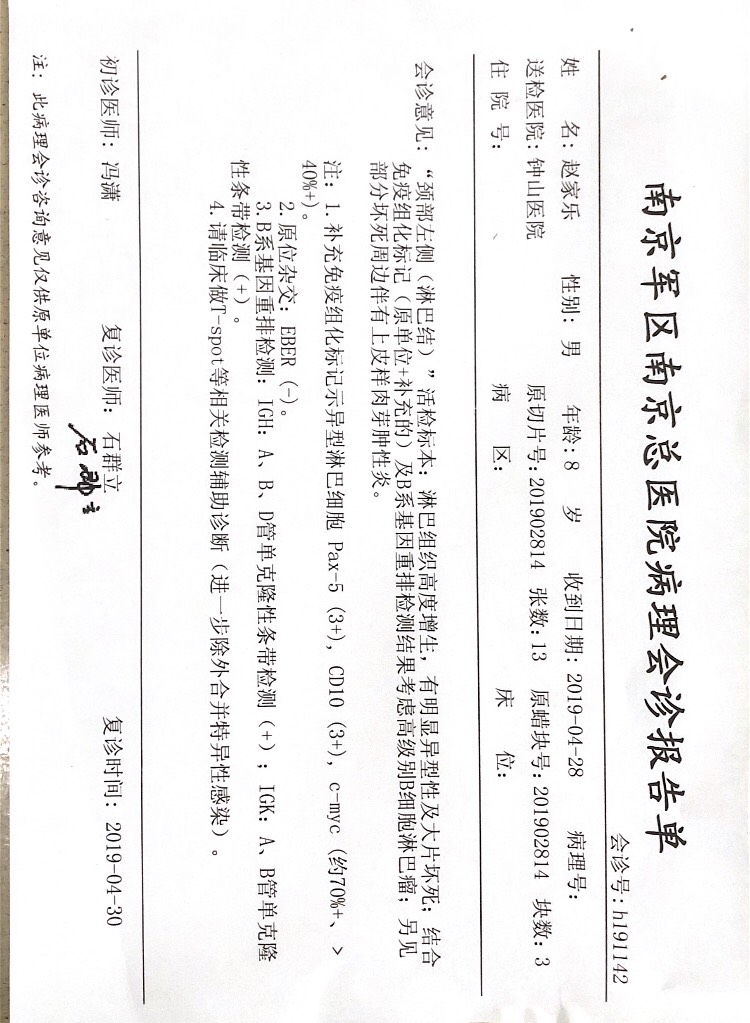 南京军区南京总医院病理会诊报告单
会诊号:h191142
姓 名:赵家乐 性别:男 年龄:8 岁 收到日期:2019-04-28 病理号:
送检医院:钟山医院 原切片号:201902814 张数:13 原蜡块号:201902814 块数:3
住 院 号: 病 区: 床 位:
会诊意见:“颈部左侧(淋巴结)”活检标本:淋巴组织高度增生,有明显异型性及大片坏死;结合
免疫组化标记(原单位+补充的)及B系基因重排检测结果考虑高级别B细胞淋巴瘤;另见
部分坏死周边伴有上皮样肉芽肿性炎。
注:1.补充免疫组化标记示异型淋巴细胞 Pax-5 (3+), CD10 (3+), c-myc (约70%+、>
40%+)。
2.原位杂交:EBER (-)。
3.B系基因重排检测:IGH: A、B、D管单克隆性条带检测 (+) ; IGK: A、B管单克隆
性条带检测 (+) 。
4.请临床做T-spot等相关检测辅助诊断(进一步除外合并特异性感染)。
初诊医师:冯潇 复诊医师:石群立 复诊时间:2019-04-30
石群立
注:此病理会诊咨询意见仅供原单位病理医师参考。